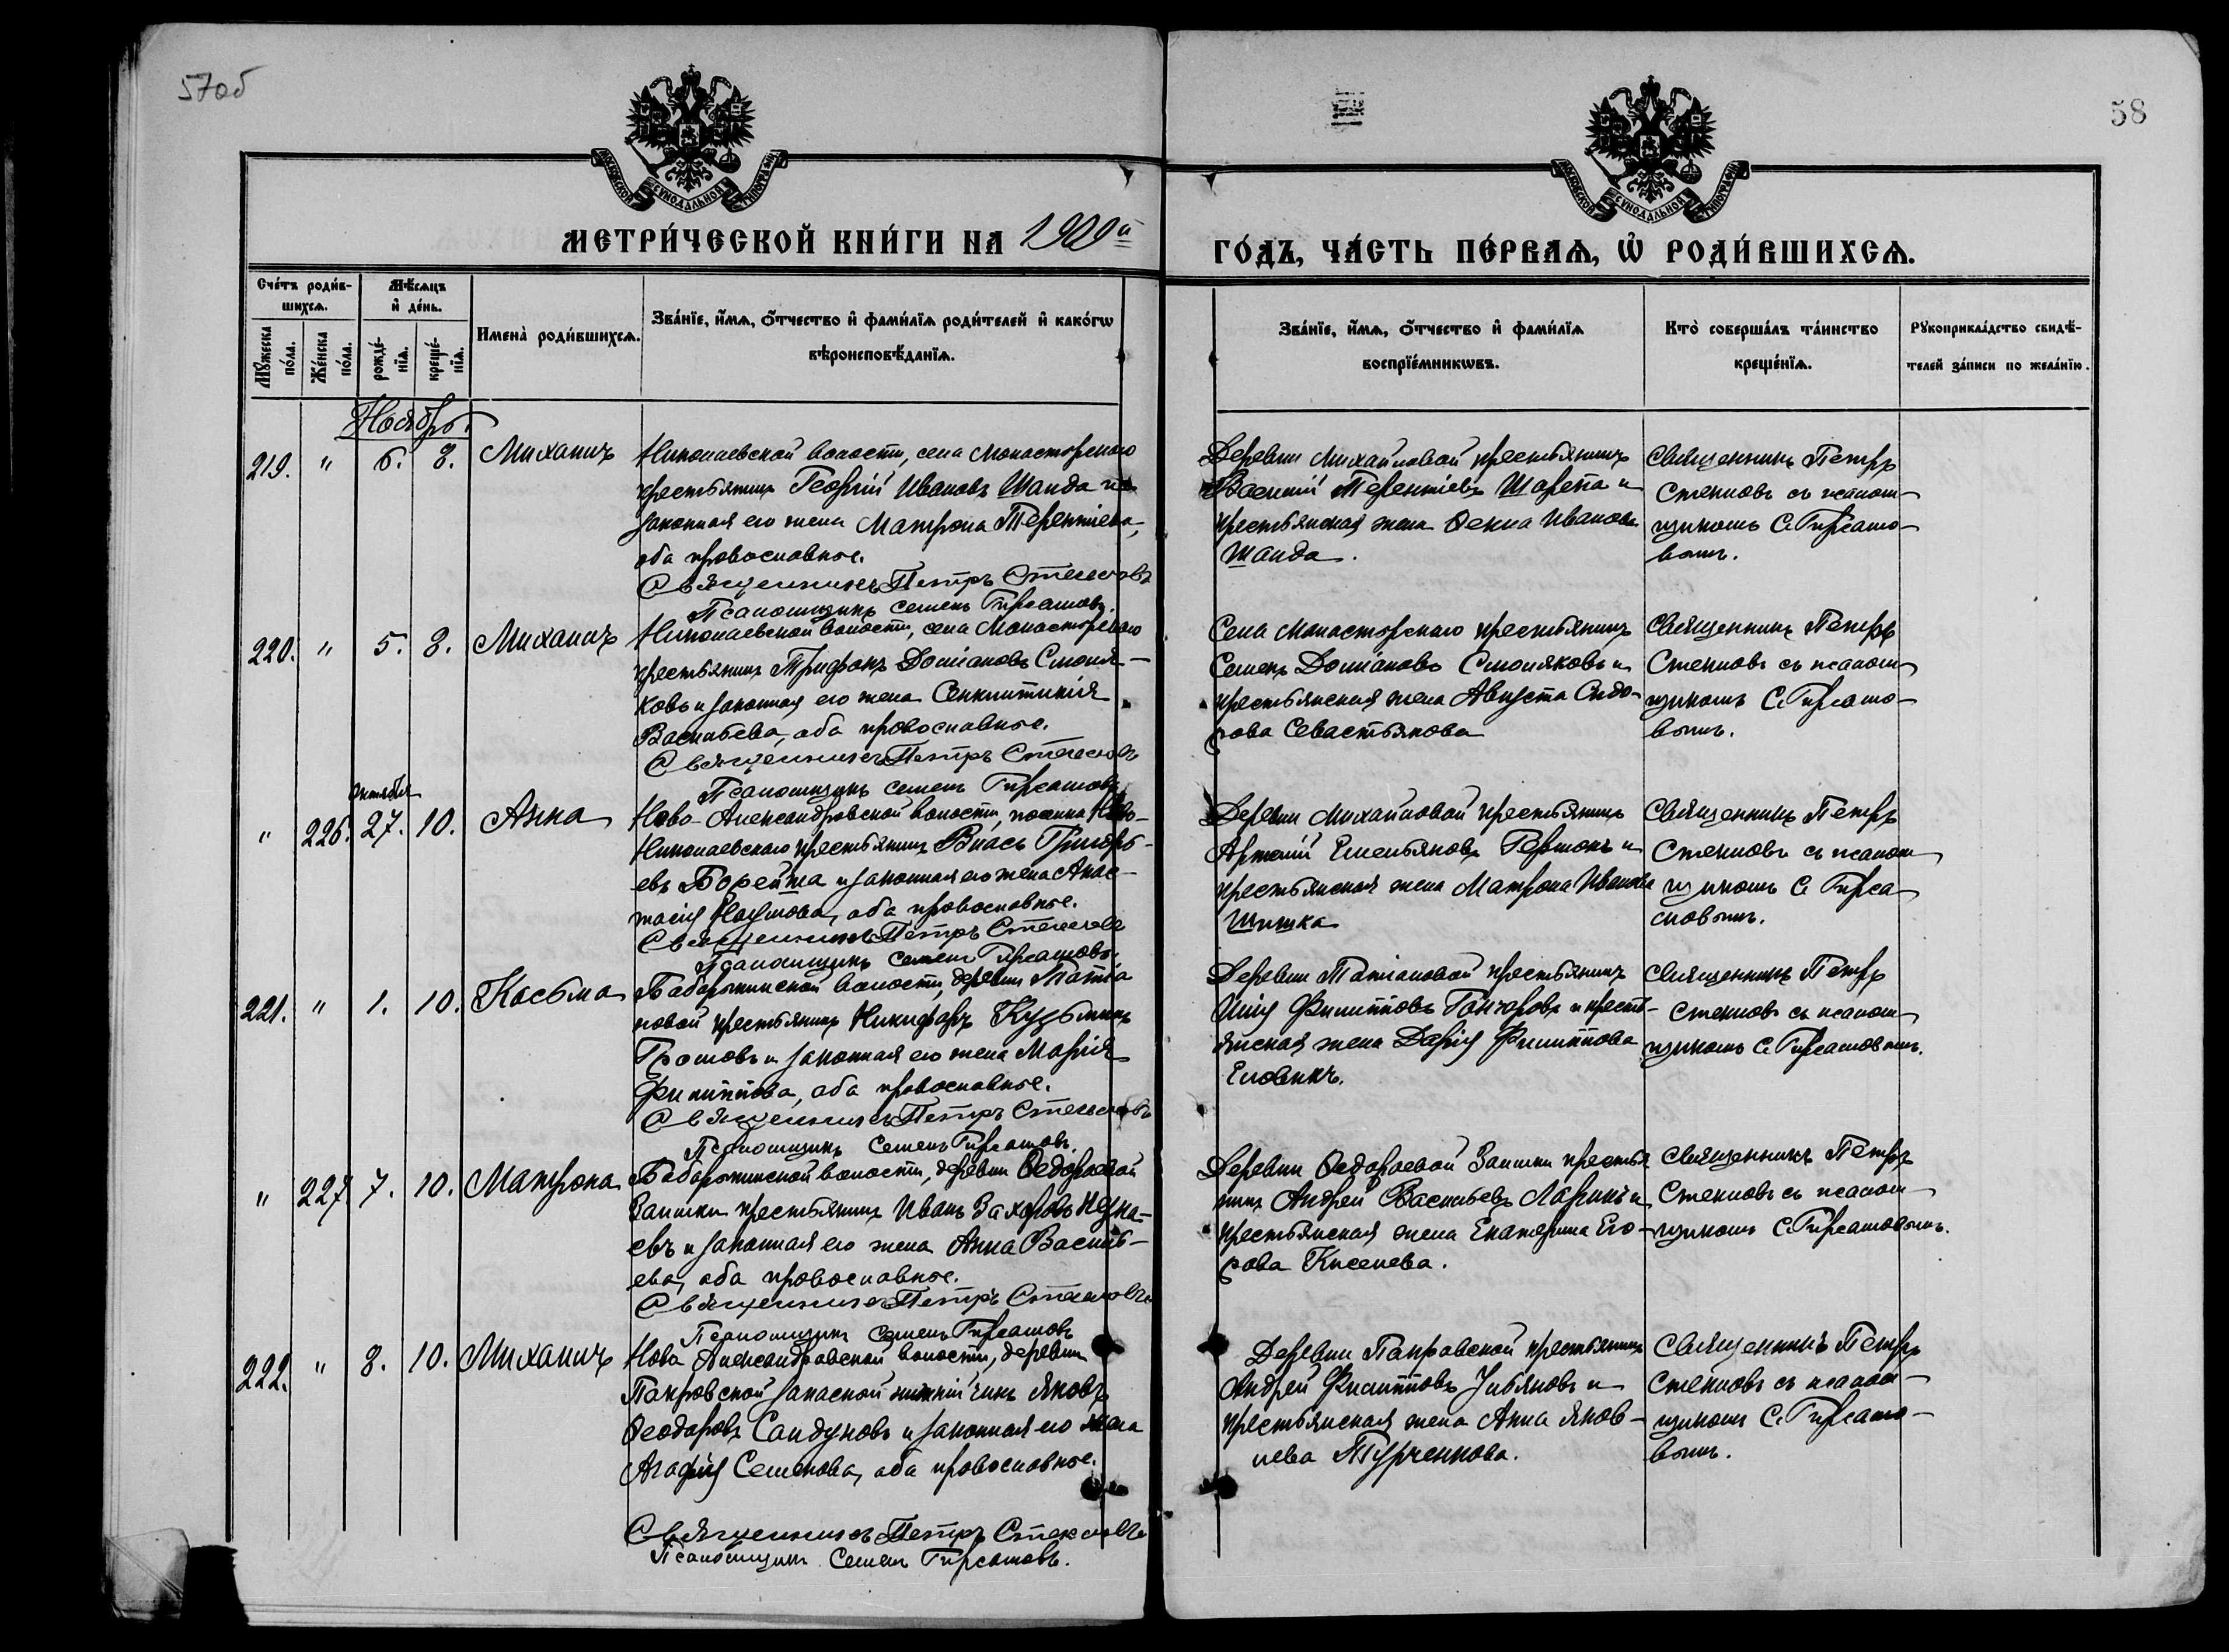 57об
58
МОСКОВСКОЙ СѴНОДАЛЬНОЙ ТИПОГРАФІИ
МОСКОВСКОЙ СѴНОДАЛЬНОЙ ТИПОГРАФІИ
МЕТРИ́ЧЕСКОЙ КНИ́ГИ НА 1909й
ГО́ДЪ, ЧА́СТЬ ПЕ́РВАѦ, Ѡ҆ РОДИ́ВШИХСѦ.
Сче́тъ роди́в-
шихсѧ.
Мѣ́сяцъ
и҆ де́нь.
Мꙋ́жеска по́ла.
Же́нска по́ла.
рожде́-
нїѧ.
креще́-
нїѧ.
Имена̀ роди́вшихсѧ.
Зва́нїе, и҆́мѧ, о҆́тчество и҆ фами́лїѧ роди́телей и҆ како́гѡ
вѣроисповѣ́данїѧ.
Зва́нїе, и҆́мѧ, о҆́тчество и҆ фами́лїѧ
воспрїе́мникѡвъ.
Кто̀ соверша́лъ та́инство
креще́нїѧ.
Рꙋкоприкла́дство свидѣ́-
телей за́писи по жела́нїю.
Ноябрь.
219. " 6. 8. Михаилъ
Николаевской волости, села Монастырскаго
крестьянинъ Георгій Ивановъ Шанда и
законная его жена Матрона Терентіева,
оба православные.
Священникъ Петръ Стекловъ
Псаломщикъ Семенъ Гирсамовъ.
Деревни Михайловой крестьянинъ
Василій Терентіевъ Шарепа и
крестьянская жена Ѳекла Иванова
Шанда.
Священникъ Петръ
Стекловъ съ псалом-
щикомъ С. Гирсамо-
вымъ.
220. " 5. 8. Михаилъ
Николаевской волости, села Монастырскаго
крестьянинъ Трифонъ Доміановъ Смоля-
ковъ и законная его жена Синклитикія
Васильева, оба православные.
Священникъ Петръ Стекловъ
Псаломщикъ Семенъ Гирсамовъ
Села Монастырскаго крестьянинъ
Семенъ Доміановъ Смоляковъ и
крестьянская жена Августа Сидо-
рова Севастьянова
Священникъ Петръ
Стекловъ съ псалом-
щикомъ С. Гирсамо-
вымъ.
октября
" 226. 27. 10. Анна
Ново-Александровской волости, починка Ново-
Николаевскаго крестьянинъ Власъ Григорь-
евъ Борейша и законная его жена Анас-
тасія Наумова, оба православные.
Священникъ Петръ Стекловъ
Псаломщикъ Семенъ Гирсамовъ.
Деревни Михайловой крестьянинъ
Артемій Емельяновъ Гермонъ и
крестьянская жена Матрона Иванова
Шишка
Священникъ Петръ
Стекловъ съ псалом-
щикомъ С. Гирса-
мовымъ.
221. " 1. 10. Косьма
волости, деревни Татіа
новой крестьянинъ Никифоръ Кузьминъ
Громовъ и законная его жена Марія
Филиппова, оба православные.
Священникъ Петръ Стекловъ
Псаломщикъ Семенъ Гирсамовъ.
Деревни Татіановой крестьянинъ
Илія Филипповъ Гончаровъ и кресть-
янская жена Дарія Филиппова
Еловикъ.
Священникъ Петръ
Стекловъ съ псалом-
щикомъ С. Гирсамовымъ.
" 227 7. 10. Матрона
волости, деревни Ѳедоровой
Заимки крестьянинъ Иванъ Захаровъ
евъ и законная его жена Анна Василь-
ева, оба православные.
Священникъ Петръ Стекловъ
Псаломщикъ Семенъ Гирсамовъ
Деревни Ѳедоровой Заимки крестья
нинъ Андрей Васильевъ Ларинъ и
крестьянская жена Екатерина Его-
рова Киселева.
Священникъ Петръ
Стекловъ съ псалом-
щикомъ С. Гирсамовымъ.
222. " 8. 10. Михаилъ
Ново Александровской волости, деревни
Покровской запасной нижній чинъ Яковъ
Ѳеодоровъ Сандуновъ и законная его жена
Агафія Семенова, оба православные.
Священникъ Петръ Стекловъ
Псаломщикъ Семенъ Гирсамовъ.
Деревни Покровской крестьянинъ
Андрей Филипповъ Ульяновъ и
крестьянская жена Анна Яков-
лева Турченкова.
Священникъ Петръ
Стекловъ съ псалом-
щикомъ С. Гирсамо-
вымъ.